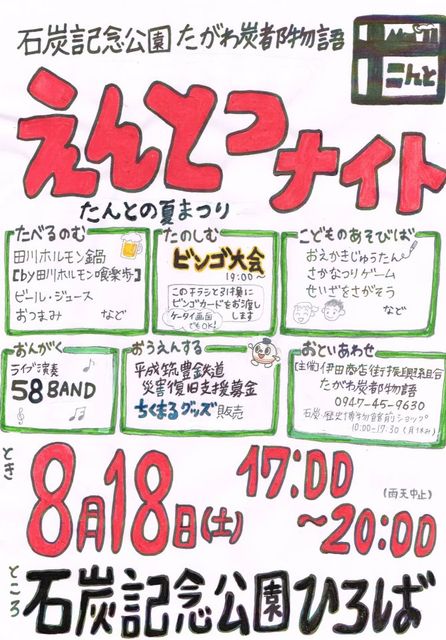 石炭記念公園 たがわ炭都物語
えんとつ
ナイト
たんとの夏まつり
たべるのむ
田川ホルモン鍋
【by田川ホルモン喰楽歩】
ビール・ジュース
おつまみ など
たのしむ
ビンゴ大会
19:00〜
このチラシと引換に
ビンゴカードをお渡し
します
ケータイ画面
でもOK!
こどものあそびば
おえかきじゅうたん
さかなつりゲーム
せいざをさがそう
など
おんがく
ライブ演奏
58BAND
おうえんする
平成筑豊鉄道
災害復旧支援募金
ちくまるグッズ販売
おといあわせ
【主催】伊田商店街振興組合
たがわ炭都物語
0947-45-9630
石炭・歴史博物館前ショップ
10:00-17:30(月休み)
とき
8月18日(土)
17:00
(雨天中止)
〜20:00
ところ
石炭記念公園ひろば